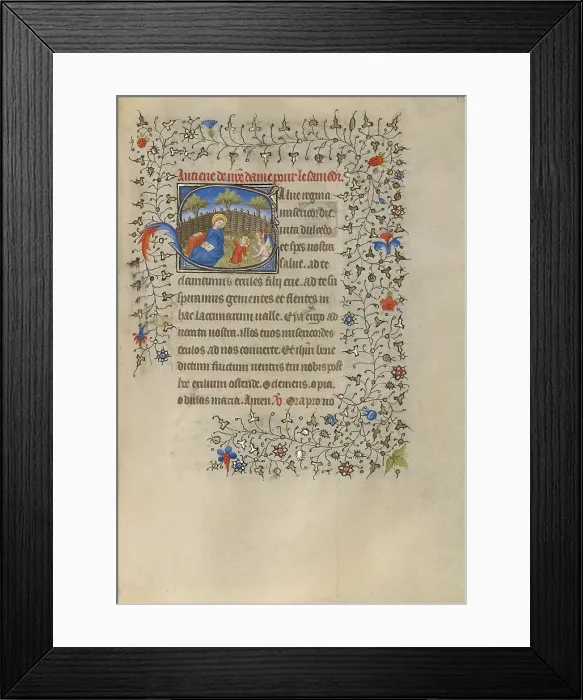 Antiene de nr̄e dame pour le samedi.
Salue regina
misericordie.
uita dulcedo
et spes nostra
salue. ad te
clamamus exules filij eue. ad te su
spiramus gementes et flentes in
hac lacrimarum ualle. Eya ergo ad
uocata nostra. illos tuos misericordes
oculos ad nos conuerte. Et ihm̄ bene
dictum fructum uentris tui nobis post
hoc exilium ostende. o clemens. o pia.
o dulcis maria. Amen. V̄ Ora pro no